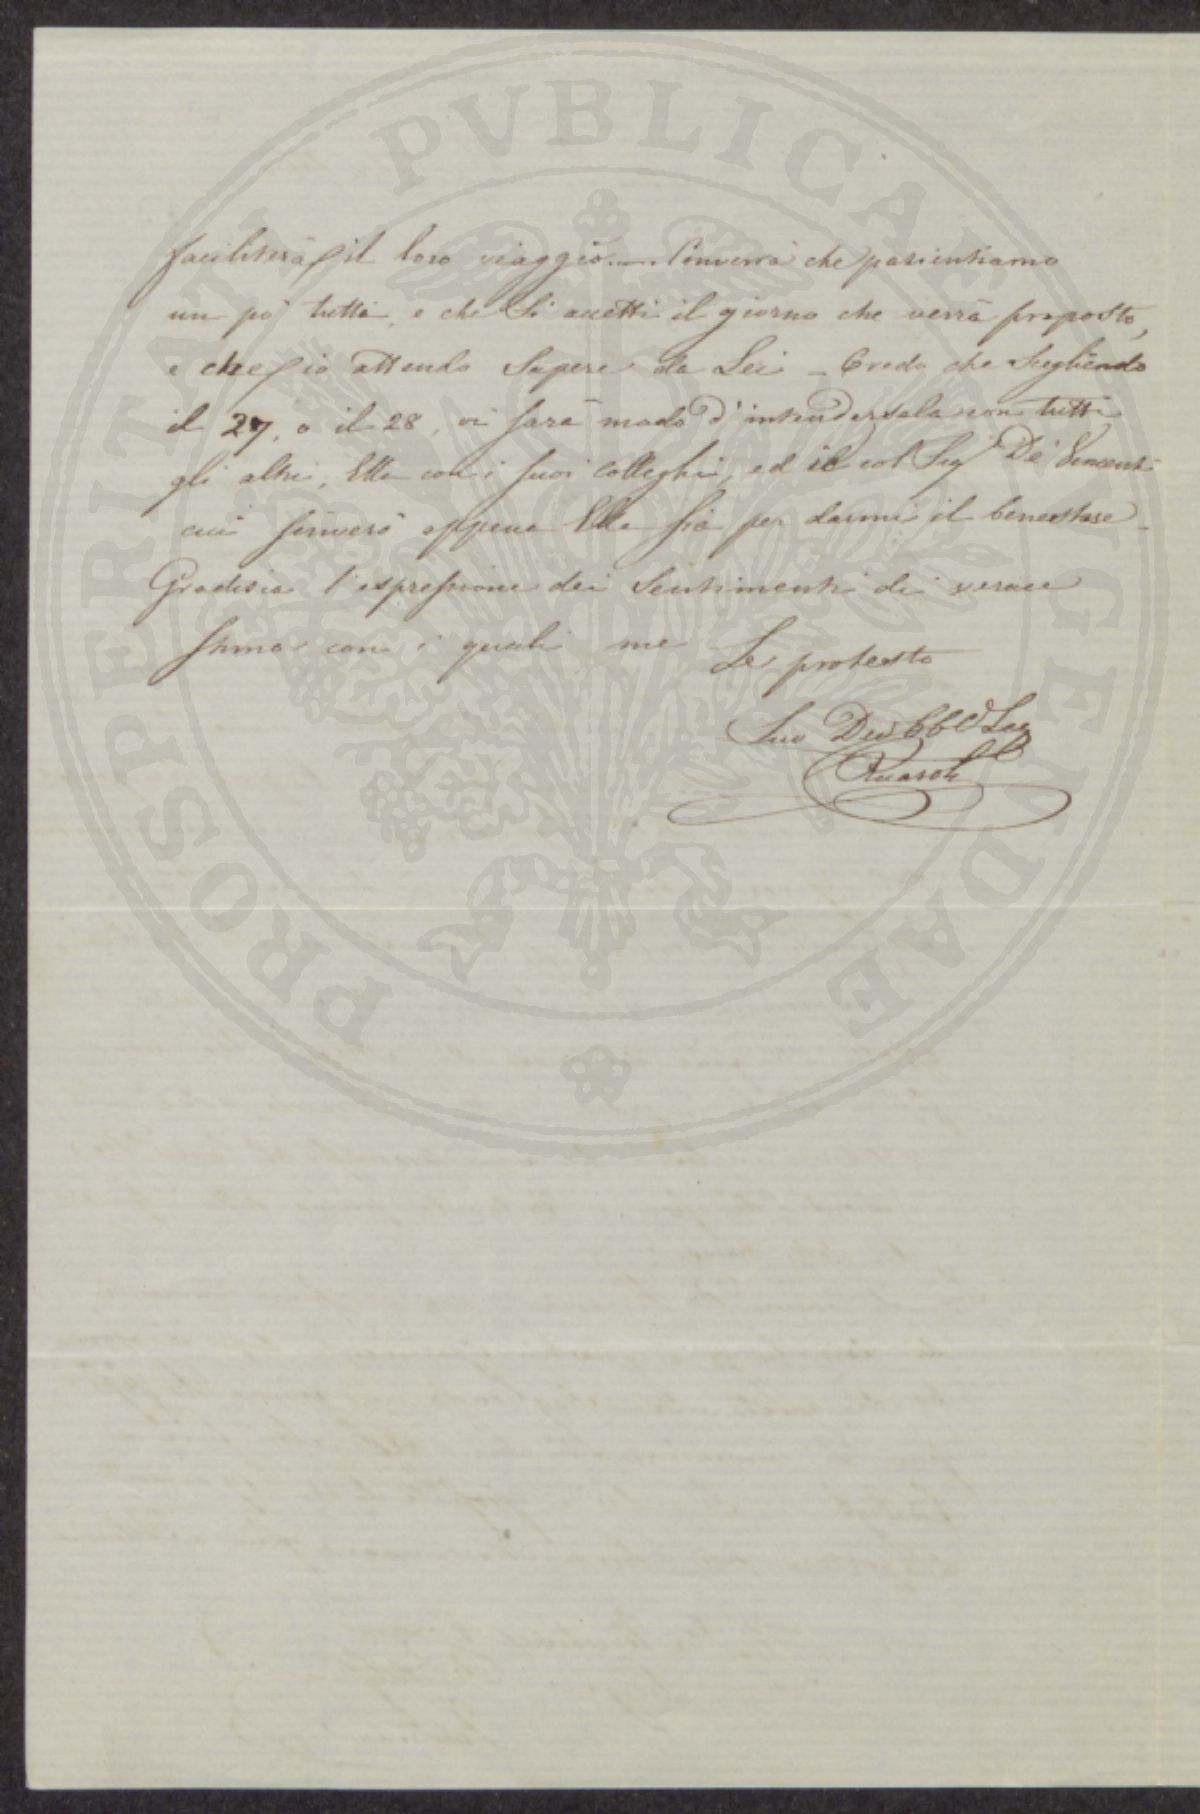 PROSPERITATI PVBLICAE AVGENDAE
faciliterà il loro viaggio. — Converrà che pazientiamo
un pò tutti, e che Si accetti il giorno che verrà proposto,
e che io attendo Sapere da Lei — Credo che Scegliendo
il 27, o il 28, vi sarà modo d'intendersela con tutti
gli altri, Ella con i suoi Colleghi, ed io col Sigr De Vincenti
cui scriverò appena Ella sia per darmi il benestare —
Gradisca l'espressione dei Sentimenti di verace
stima con i quali me Le protesto
Suo Dev
Ricasoli